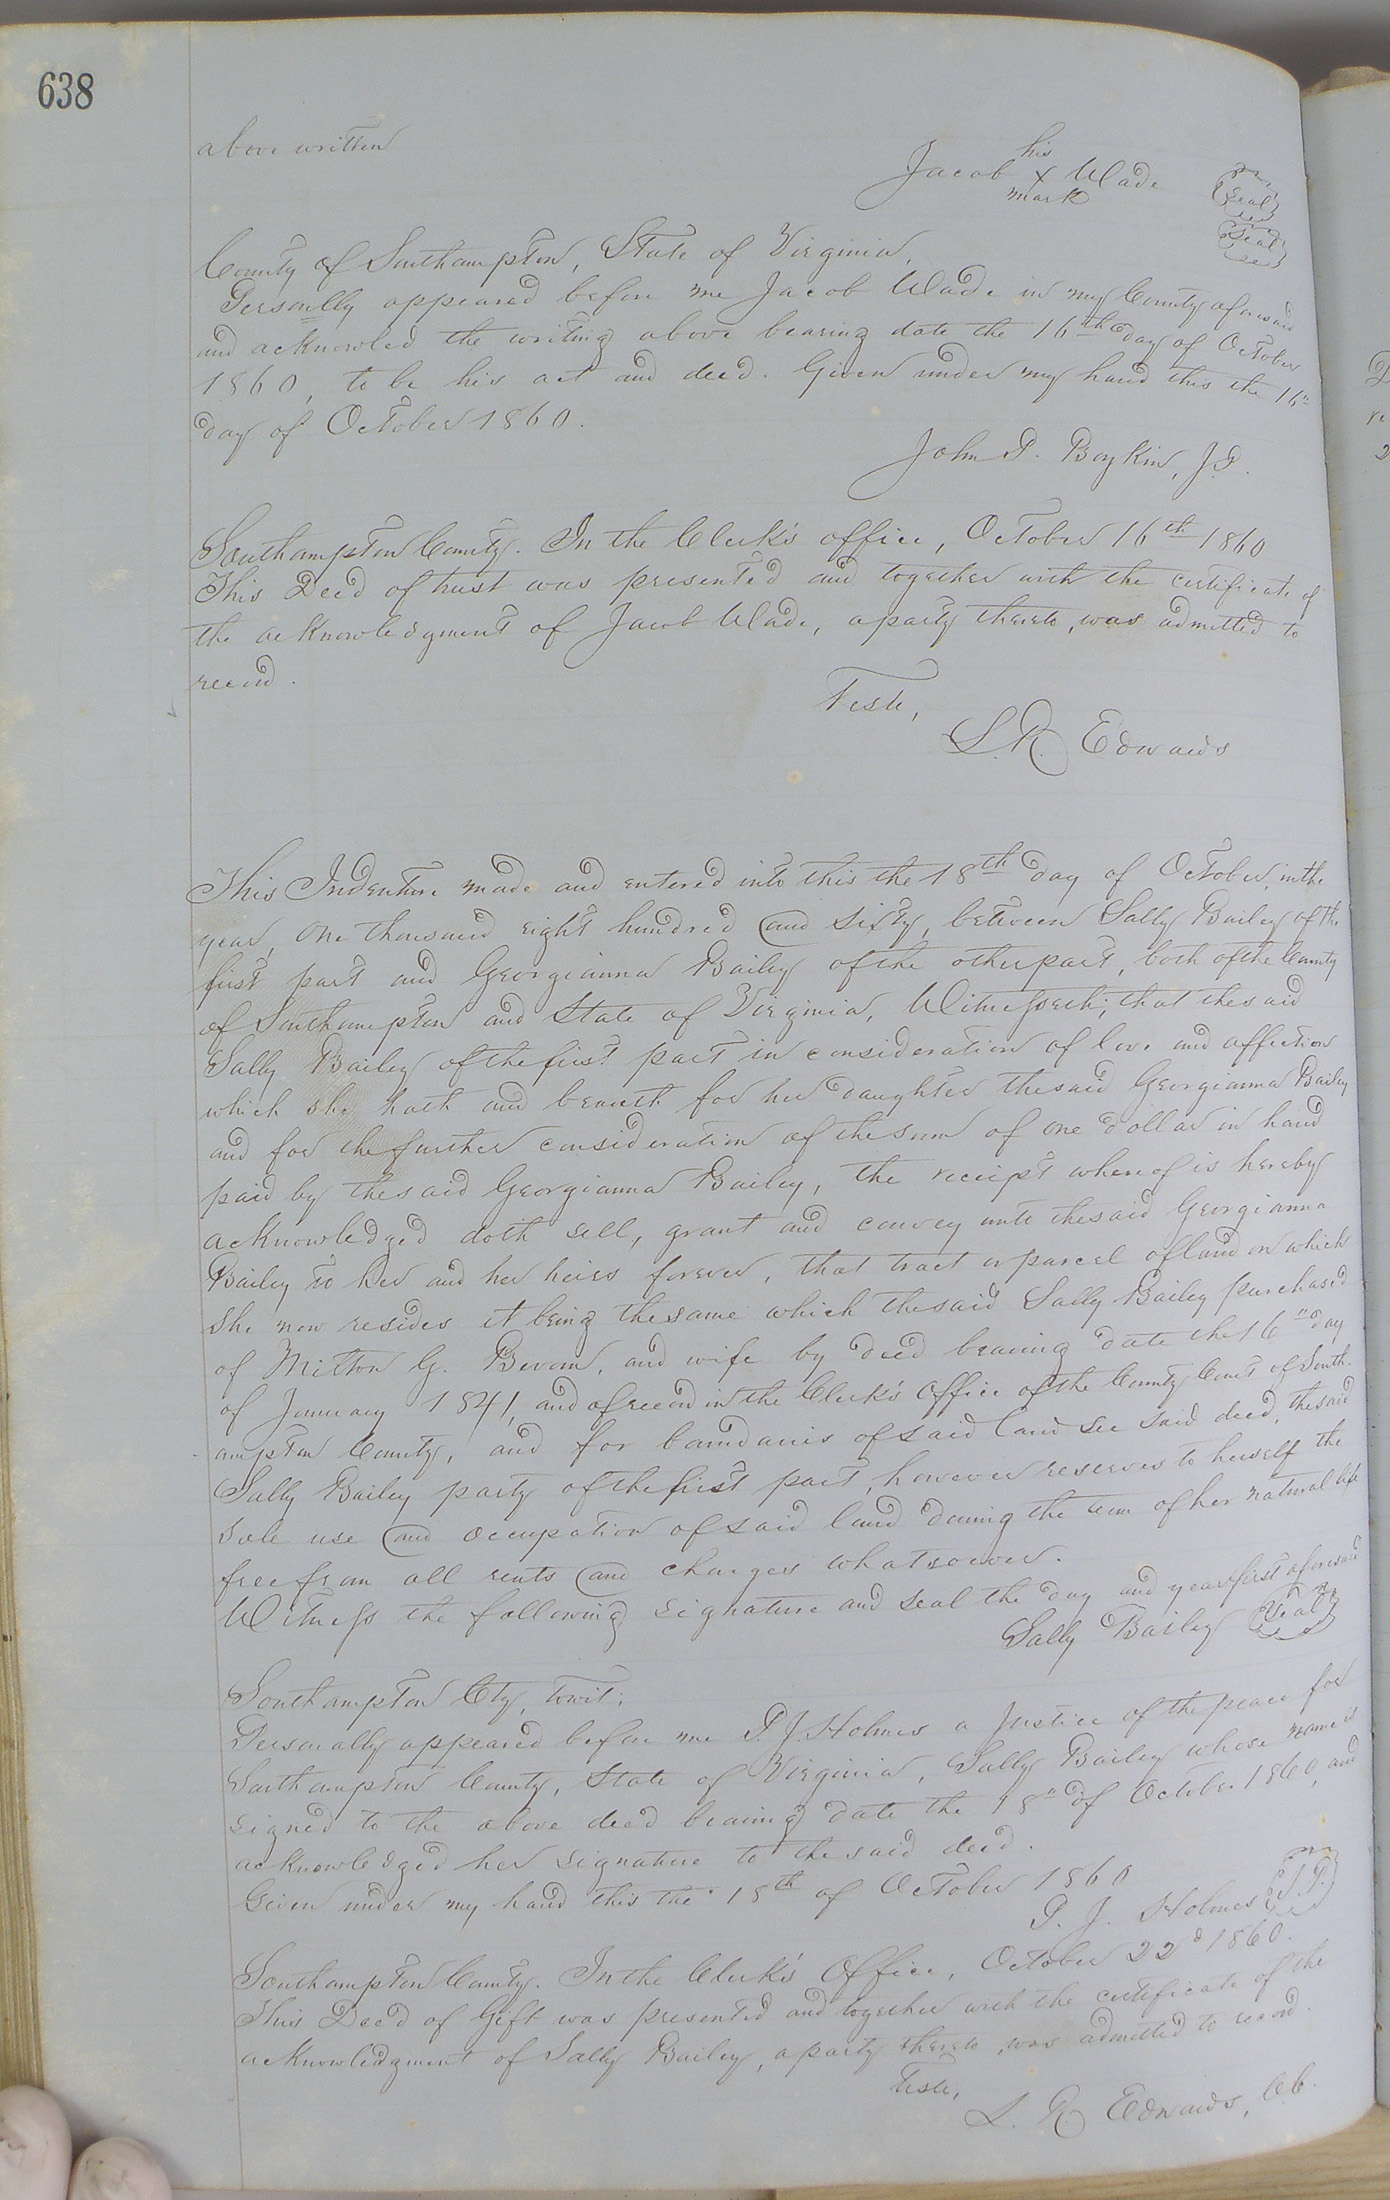 638
above written
his
Jacob x Wade
mark
Seal
Seal
County of Southampton, State of Virginia,
Personlly appeared before me Jacob Wade in my County aforesaid
and acknowled the writing above bearing date the 16th day of October
1860, to be his act and deed. Given under my hand this the 16th
day of October 1860.
John P. Boykin, J.P.
Southampton County. In the Clerk's office, October 16th 1860
This Deed of trust was presented and together with the certificate of
the acknowledgment of Jacob Wade, a party thereto, was admitted to
record.
Teste,
L. R. Edwards
This Indenture made and entered into this the 18th day of October, in the
year, One thousand eight hundred and sixty, between Sally Bailey of the
first part and Georgianna Bailey of the other part, both of the County
of Southampton and State of Virginia, Witnesseth; that the said
Sally Bailey of the first part in consideration of love and affection
which she hath and beareth for her daughter the said Georgianna Bailey
and for the further consideration of the sum of one dollar in hand
paid by the said Georgianna Bailey, the receipt whereof is hereby
acknowledged doth sell, grant and convey unto the said Georgianna
Bailey to her and her heirs forever, that tract or parcel of land on which
she now resides it being the same which the said Sally Bailey purchased
of Milton G. and wife by deed bearing date the 16th day
of January 1841, and of record in the Clerk's Office of the County Court of South-
ampton County, and for boundaries of said land see said deed, the said
Sally Bailey party of the first part, however reserves to herself the
sole use and occupation of said land during the term of her natural life
free from all rents and charges whatsoever.
Witness the following signature and seal the day and year first aforesaid
Sally Bailey Seal
Southampton Cty, towit;
Personally appeared before me P. J. Holmes a Justice of the peace for
Southampton County, State of Virginia, Sally Bailey whose name is
signed to the above deed bearing date the 18th of October 1860, and
acknowledged her signature to the said deed.
Given under my hand this the 18th of October 1860
P. J. Holmes J.P.
Southampton County. In the Clerk's Office, October 22d 1860.
This Deed of Gift was presented and together with the certificate of the
acknowledgment of Sally Bailey, a party thereto, was admitted to record.
Teste,
L. R. Edwards, C.C.